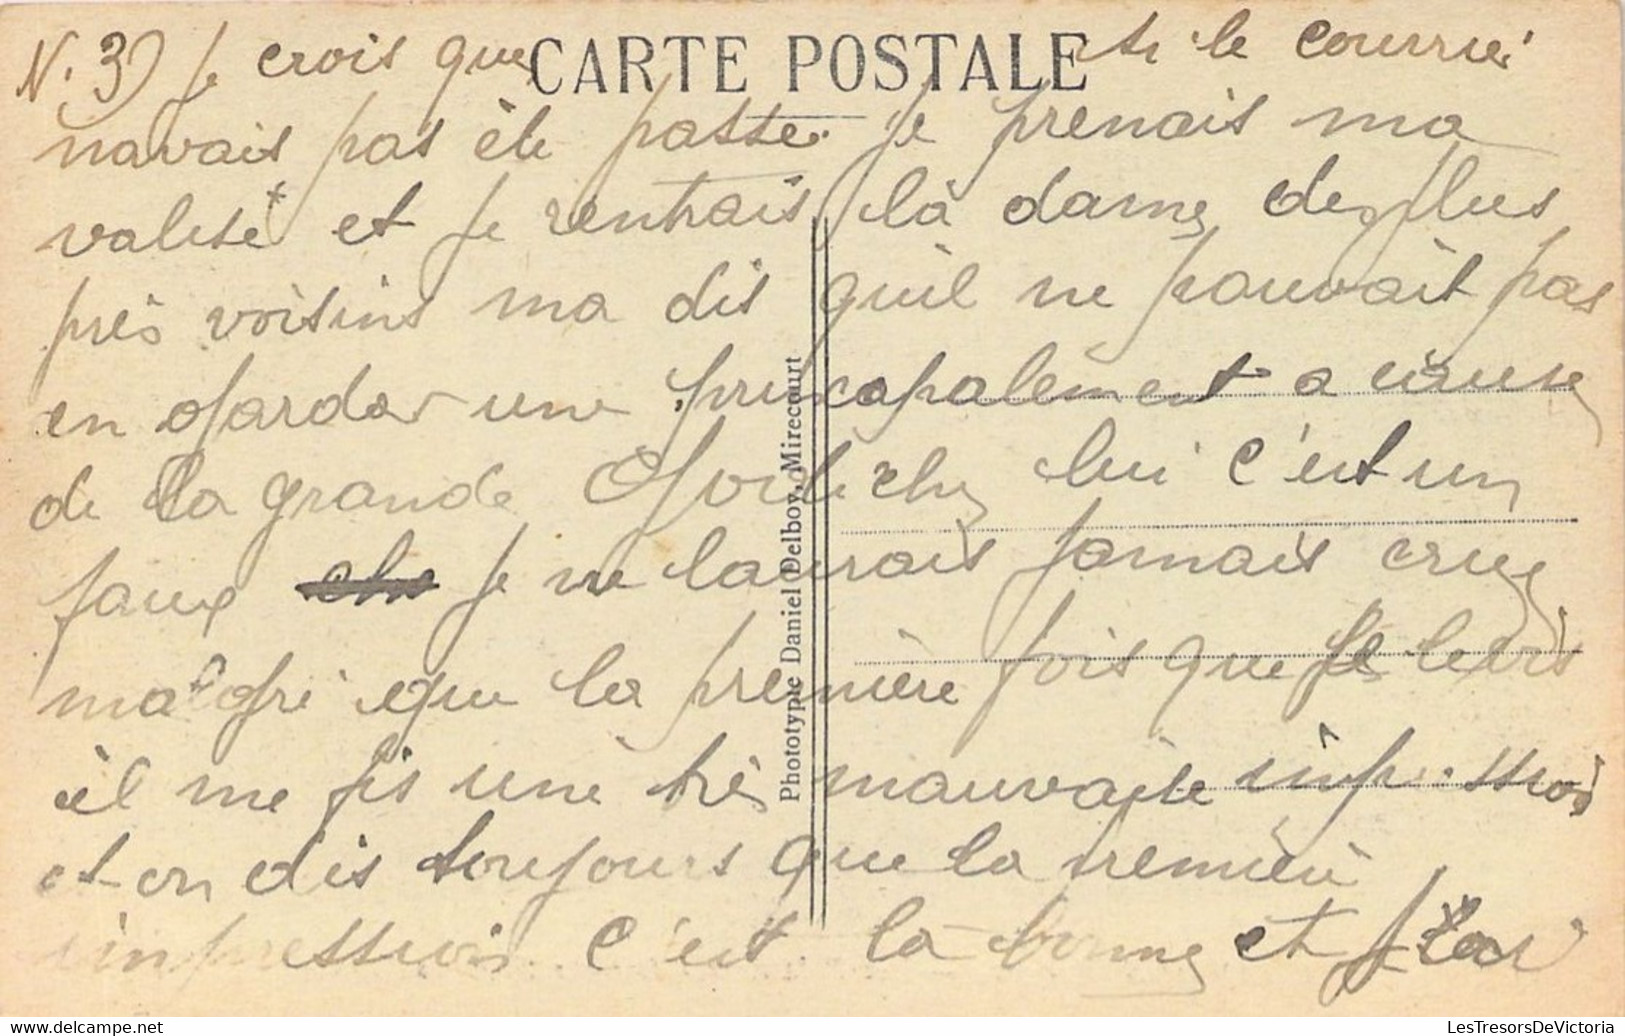 N. 3) je crois que CARTE POSTALE si le courrier
navais pas été passer je prenais ma
valise et je rentrais là dame des plus
près voisins ma dis quil ne pouvait pas
en garder une principalement a cause
de la grande lui c'est un
faux je ne laurais jamais crue
malgré que la première fois que je le vis
il me fis une très mauvaise impression
et on dis toujours que la première
impression c'est la bonne et
Phototypie Daniel Delboy, Mirecourt
LesTresorsDeVictoria